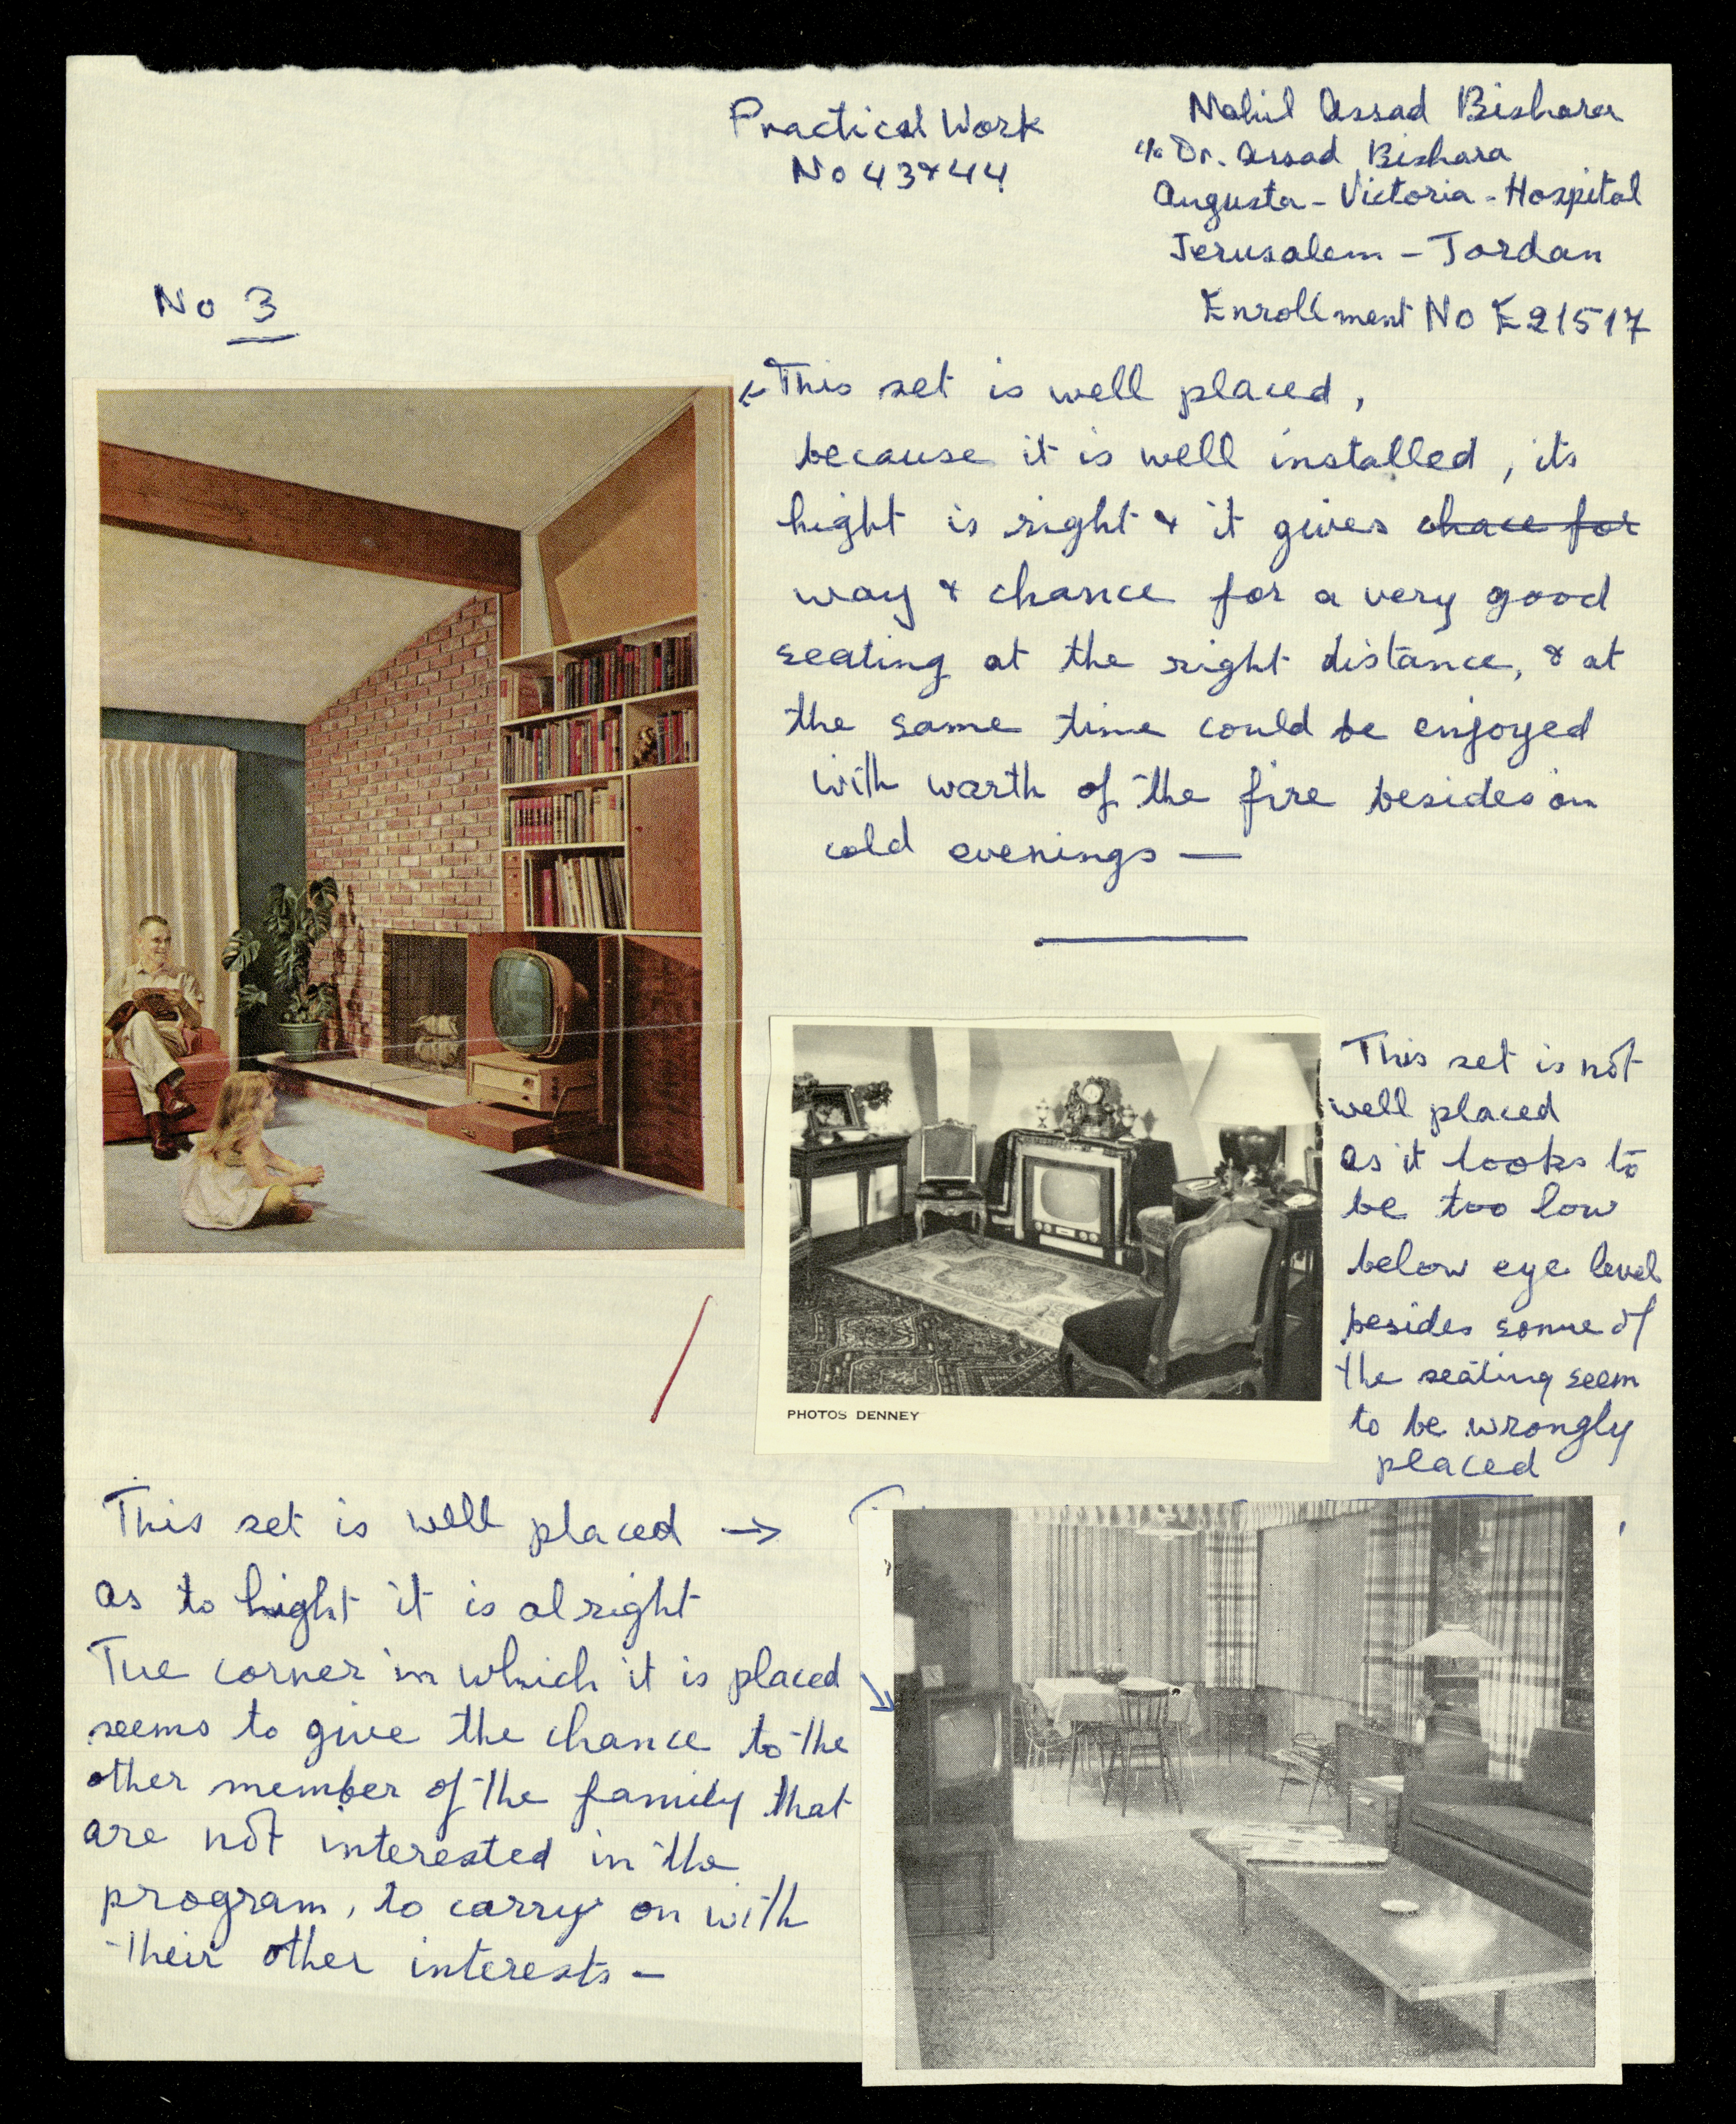 Practical Work
No 43 & 44
Nahil Assad Bishara
c/o Dr. Assad Bishara
Augusta - Victoria - Hospital
Jerusalem - Jordan
Enrollment No E21517
No 3
← This set is well placed,
because it is well installed, its
hight is right & it gives chace for
way & chance for a very good
seating at the right distance, & at
the same time could be enjoyed
with warth of the fire besides on
cold evenings —
This set is not
well placed
as it looks to
be too low
below eye level
besides some of
the seating seem
to be wrongly
placed
PHOTOS DENNEY
This set is well placed →
as to hight it is alright
The corner in which it is placed
seems to give the chance to the
other member of the family that
are not interested in the
program, to carry on with
their other interests -